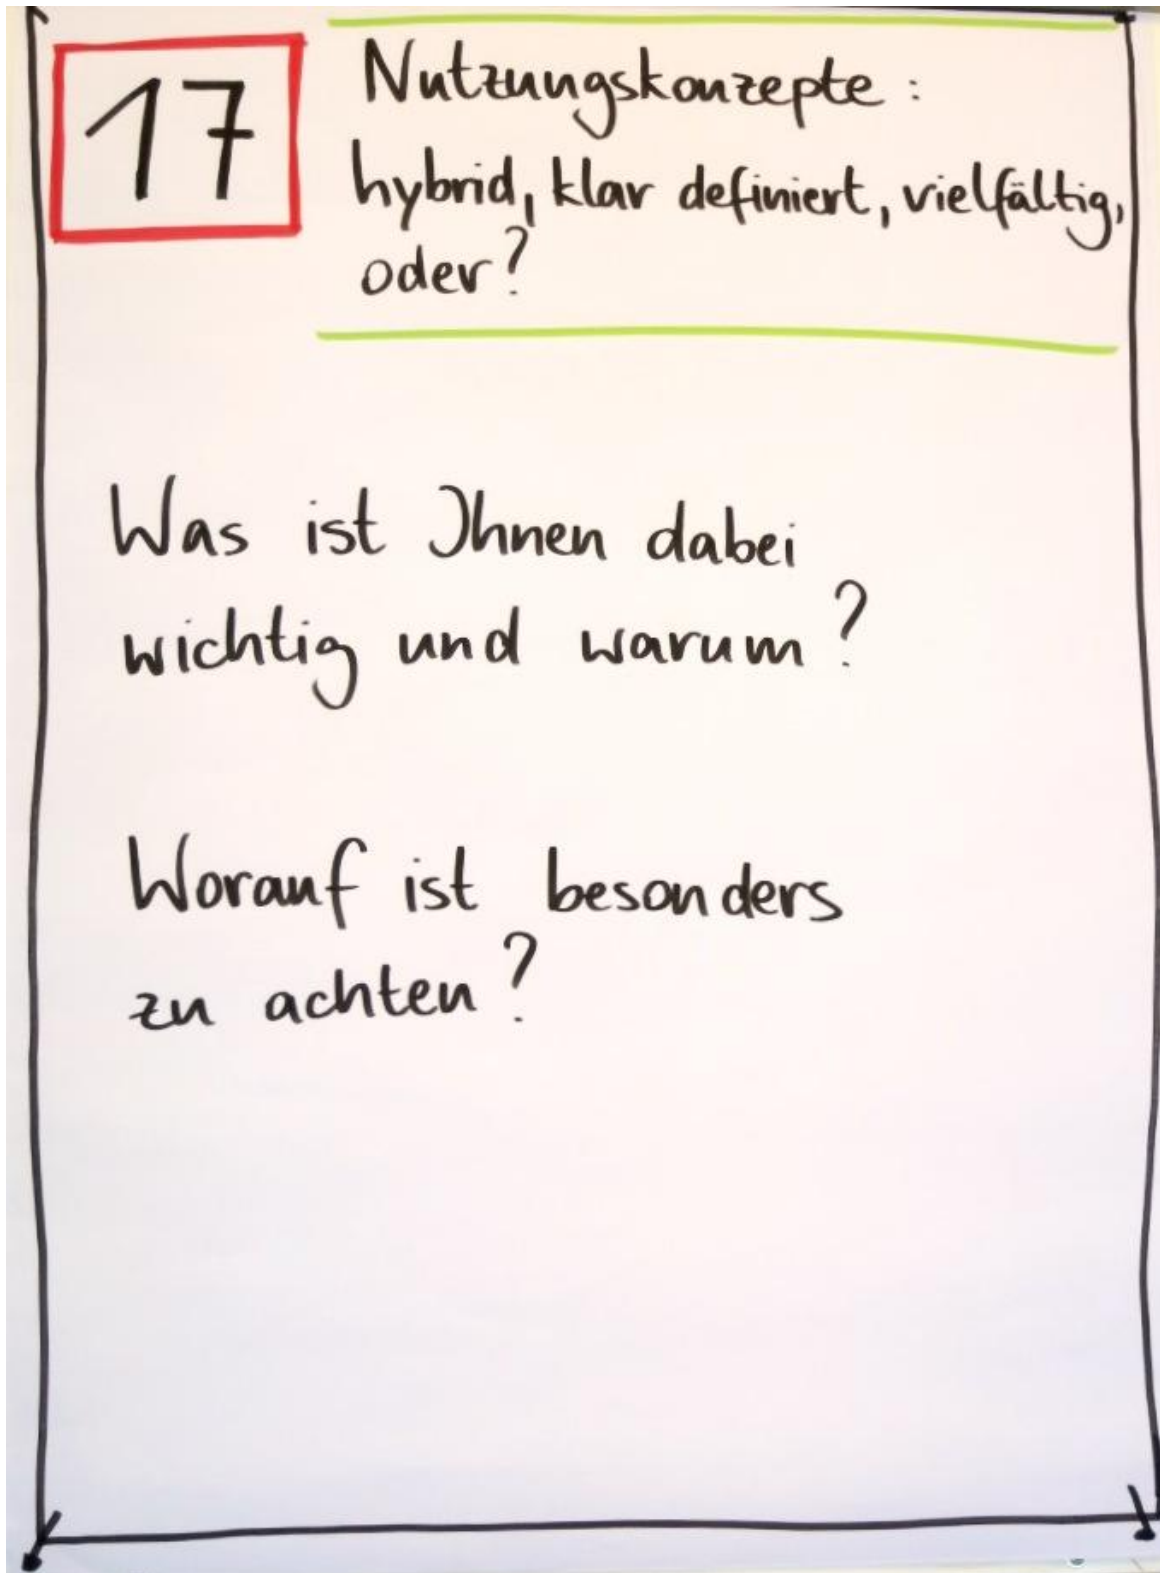 17
Nutzungskonzepte:
hybrid, klar definiert, vielfältig,
oder?
Was ist Ihnen dabei
wichtig und warum?
Worauf ist besonders
zu achten?